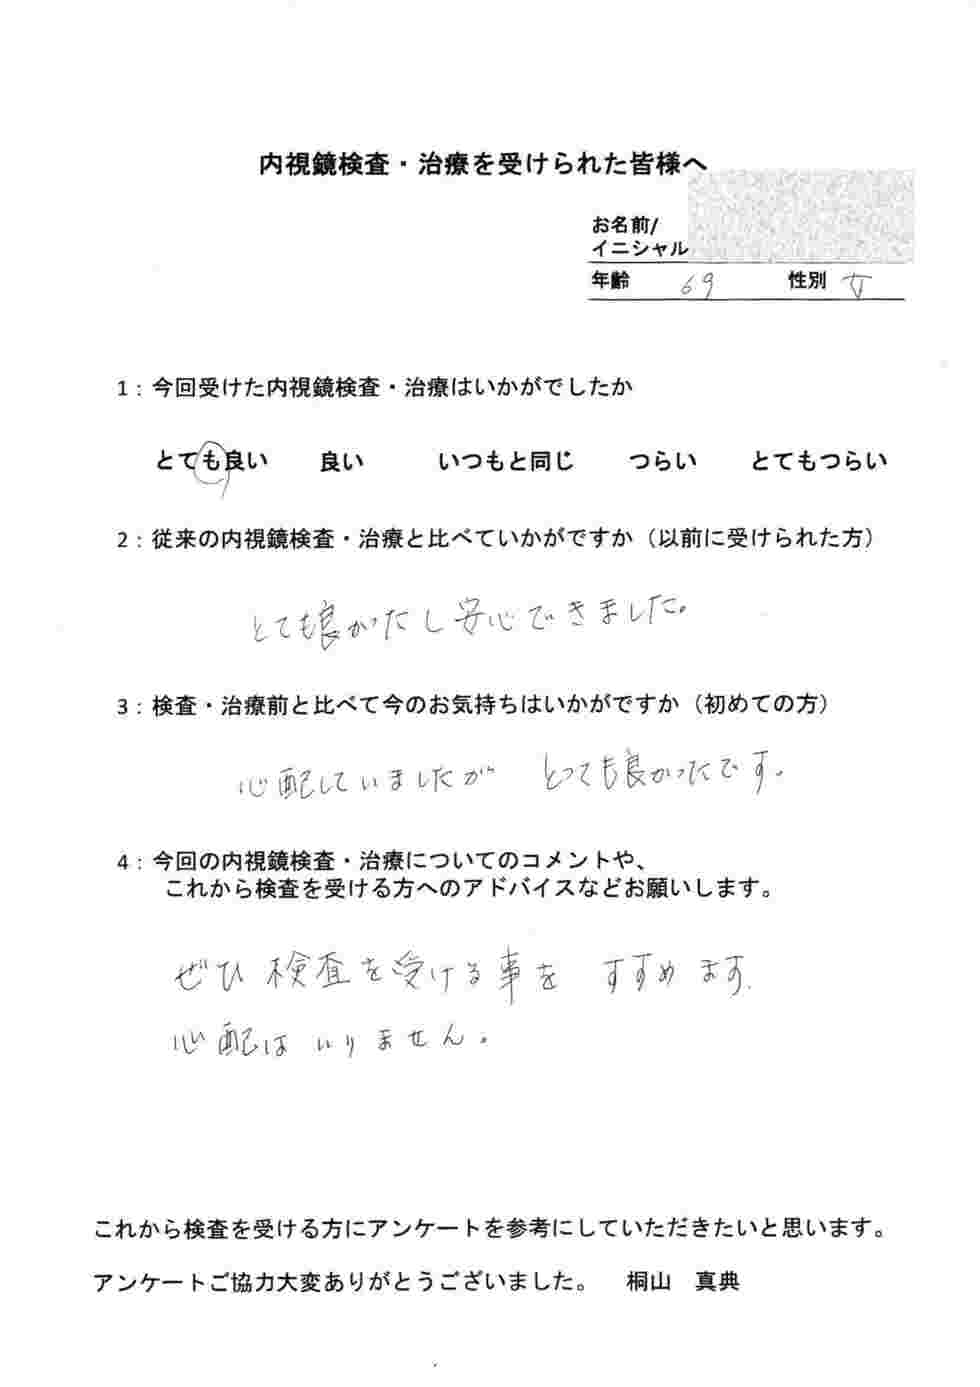 内視鏡検査・治療を受けられた皆様へ
お名前/
イニシャル
年齢 69 性別 女
1：今回受けた内視鏡検査・治療はいかがでしたか
とても良い 良い いつもと同じ つらい とてもつらい
2：従来の内視鏡検査・治療と比べていかがですか（以前に受けられた方）
とても良かったし安心できました。
3：検査・治療前と比べて今のお気持ちはいかがですか（初めての方）
心配していましたが とっても良かったです。
4：今回の内視鏡検査・治療についてのコメントや、
これから検査を受ける方へのアドバイスなどお願いします。
ぜひ検査を受ける事を すすめます.
心配は いりません。
これから検査を受ける方にアンケートを参考にしていただきたいと思います。
アンケートご協力大変ありがとうございました。 桐山 真典